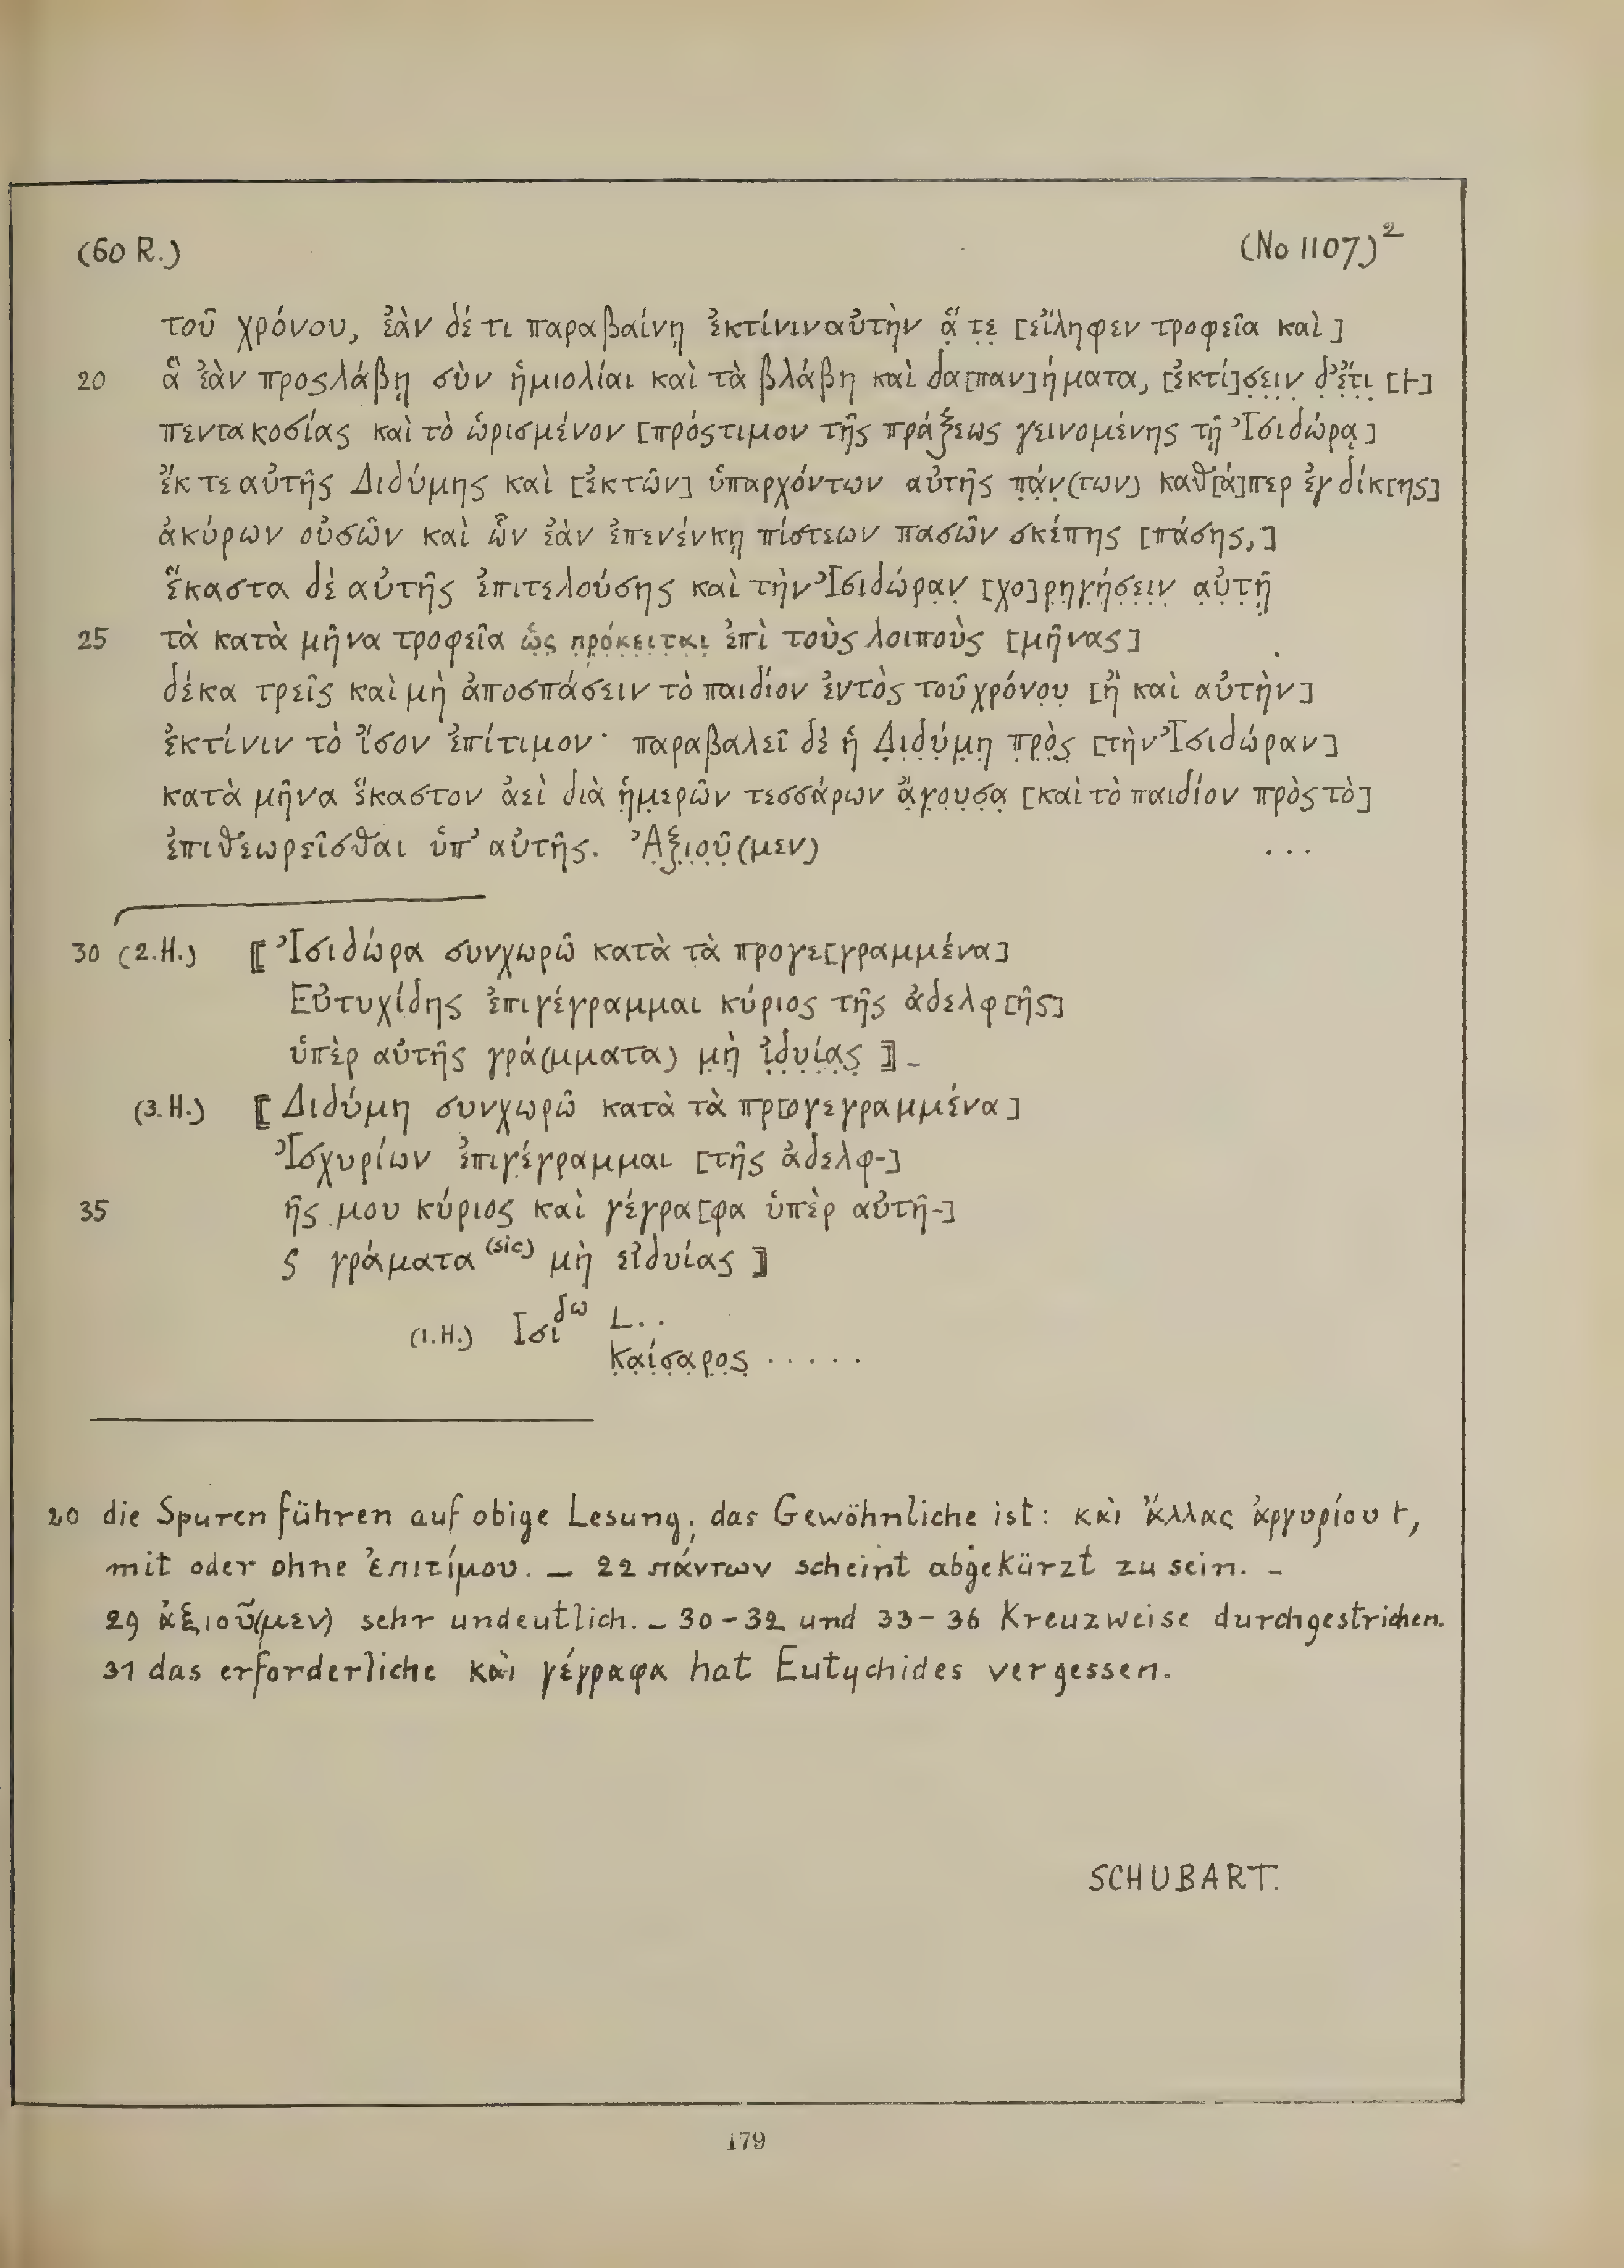 (60 R.)
(No 1107)²
τοῦ χρόνου, ἐὰν δέ τι παραβαίνῃ ἐκτίνιν αὐτὴν ἅ̣ τ̣ε̣ [εἴληφεν τροφεῖα καὶ]
20 ἃ ἐὰν προσλάβῃ σὺν ἡμιολίαι καὶ τὰ βλάβη καὶ δα[παν]ήματα, [ἐκτί]σ̣ε̣ι̣ν̣ δ̣'ἔ̣τ̣ι̣ [⊦]
πεντακοσίας καὶ τὸ ὡρισμένον [πρόστιμον τῆς πράξεως γεινομένης τῇ Ἰσιδώρᾳ]
ἔκ τε αὐτῆς Διδύμης καὶ [ἐκ τῶν] ὑπαρχόντων αὐτῆς π̣ά̣ν̣(των) καθ[ά]περ ἐγ δίκ[ης]
ἀκύρων οὐσῶν καὶ ὧν ἐὰν ἐπενένκῃ πίστεων πασῶν σκέπης [πάσης,]
ἕκαστα δὲ αὐτῆς ἐπιτελούσης καὶ τὴν Ἰσιδώρα̣ν̣ [χο]ρ̣η̣γ̣ή̣σ̣ε̣ι̣ν̣ α̣ὐ̣τ̣ῇ̣
25 τὰ κατὰ μῆνα τροφεῖα ὡ̣ς̣ π̣ρ̣ό̣κ̣ε̣ι̣τ̣α̣ι̣ ἐπὶ τοὺς λοιποὺς [μῆνας]
δέκα τρεῖς καὶ μὴ ἀποσπάσειν τὸ παιδίον ἐντὸς τοῦ χρόνο̣υ̣ [ἢ καὶ αὐτὴν]
ἐκτίνιν τὸ ἴσον ἐπίτιμον· παραβαλεῖ δὲ ἡ Δ̣ι̣δ̣ύ̣μ̣η̣ π̣ρ̣ὸ̣ς̣ [τὴν Ἰσιδώραν]
κατὰ μῆνα ἕκαστον ἀεὶ διὰ ἡ̣μ̣ερῶν τεσσάρων ἄ̣γ̣ο̣υ̣σ̣α̣ [καὶ τὸ παιδίον πρὸς τὸ]
ἐπιθεωρεῖσθαι ὑπ' αὐτῆς. Ἀ̣ξ̣ι̣ο̣ῦ̣(μεν) ...
30 (2.H.) ⟦Ἰσιδώρα συνχωρῶ κατὰ τὰ προγε[γραμμένα]
Εὐτυχίδης ἐπιγέγραμμαι κύριος τῆς ἀδελφ[ῆς]
ὑπὲρ αὐτῆς γρά(μματα) μ̣ὴ̣ ἰ̣δ̣υ̣ί̣α̣ς̣⟧_
(3.H.) ⟦Διδύμη συνχωρῶ κατὰ τὰ πρ[ογεγραμμένα]
Ἰσχυρίων ἐπιγέγραμμαι [τῆς ἀδελφ-]
35 ῆς μου κύριος καὶ γέγρα[φα ὑπὲρ αὐτῆ-]
ς γράματα (sic) μὴ εἰδυίας⟧
(1.H.) Ισιδω L..
Κ̣α̣ί̣σ̣α̣ρ̣ο̣ς̣ .....
20 die Spuren führen auf obige Lesung; das Gewöhnliche ist: καὶ ἄλλας ἀργυρίου ⊦,
mit oder ohne ἐπιτίμου. — 22 πάντων scheint abgekürzt zu sein. -
29 ἀξιοῦ(μεν) sehr undeutlich. — 30-32 und 33-36 Kreuzweise durchgestrichen.
31 das erforderliche καὶ γέγραφα hat Eutychides vergessen.
SCHUBART.
179